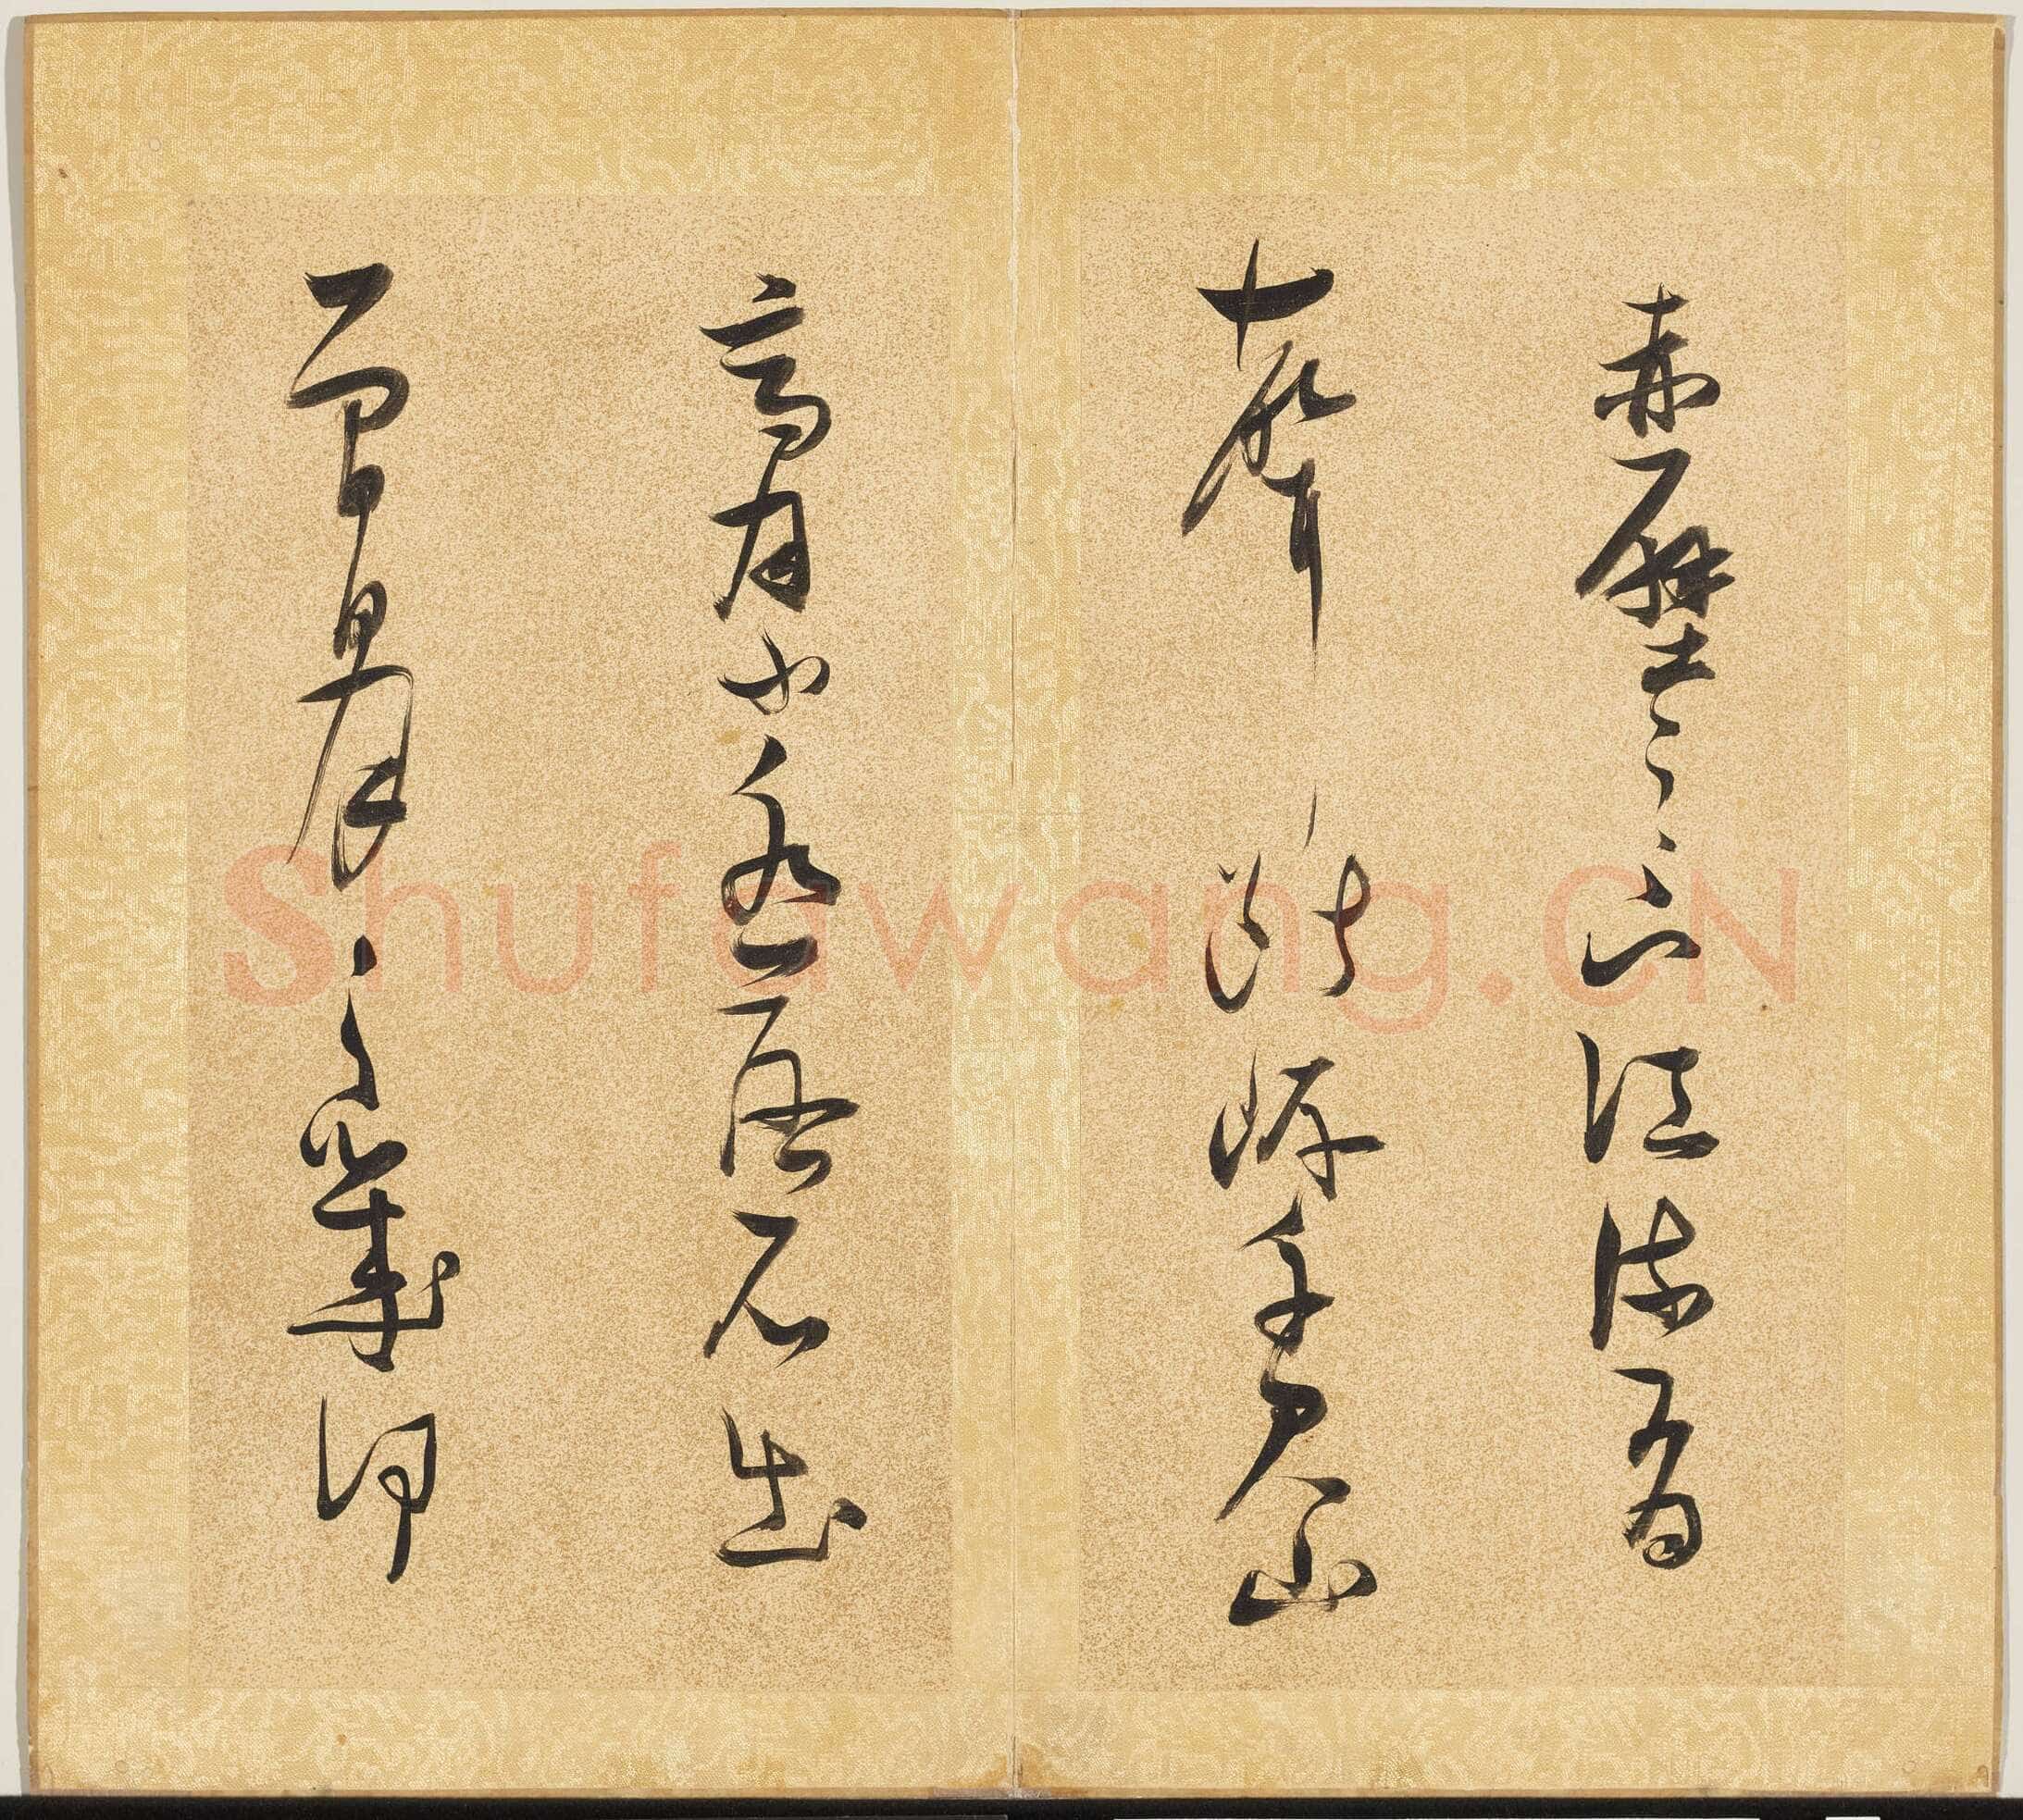 赤壁之下江流有
聲斷岸千尺山
高月小水落石出
曾日月之幾何
Shufawang.CN